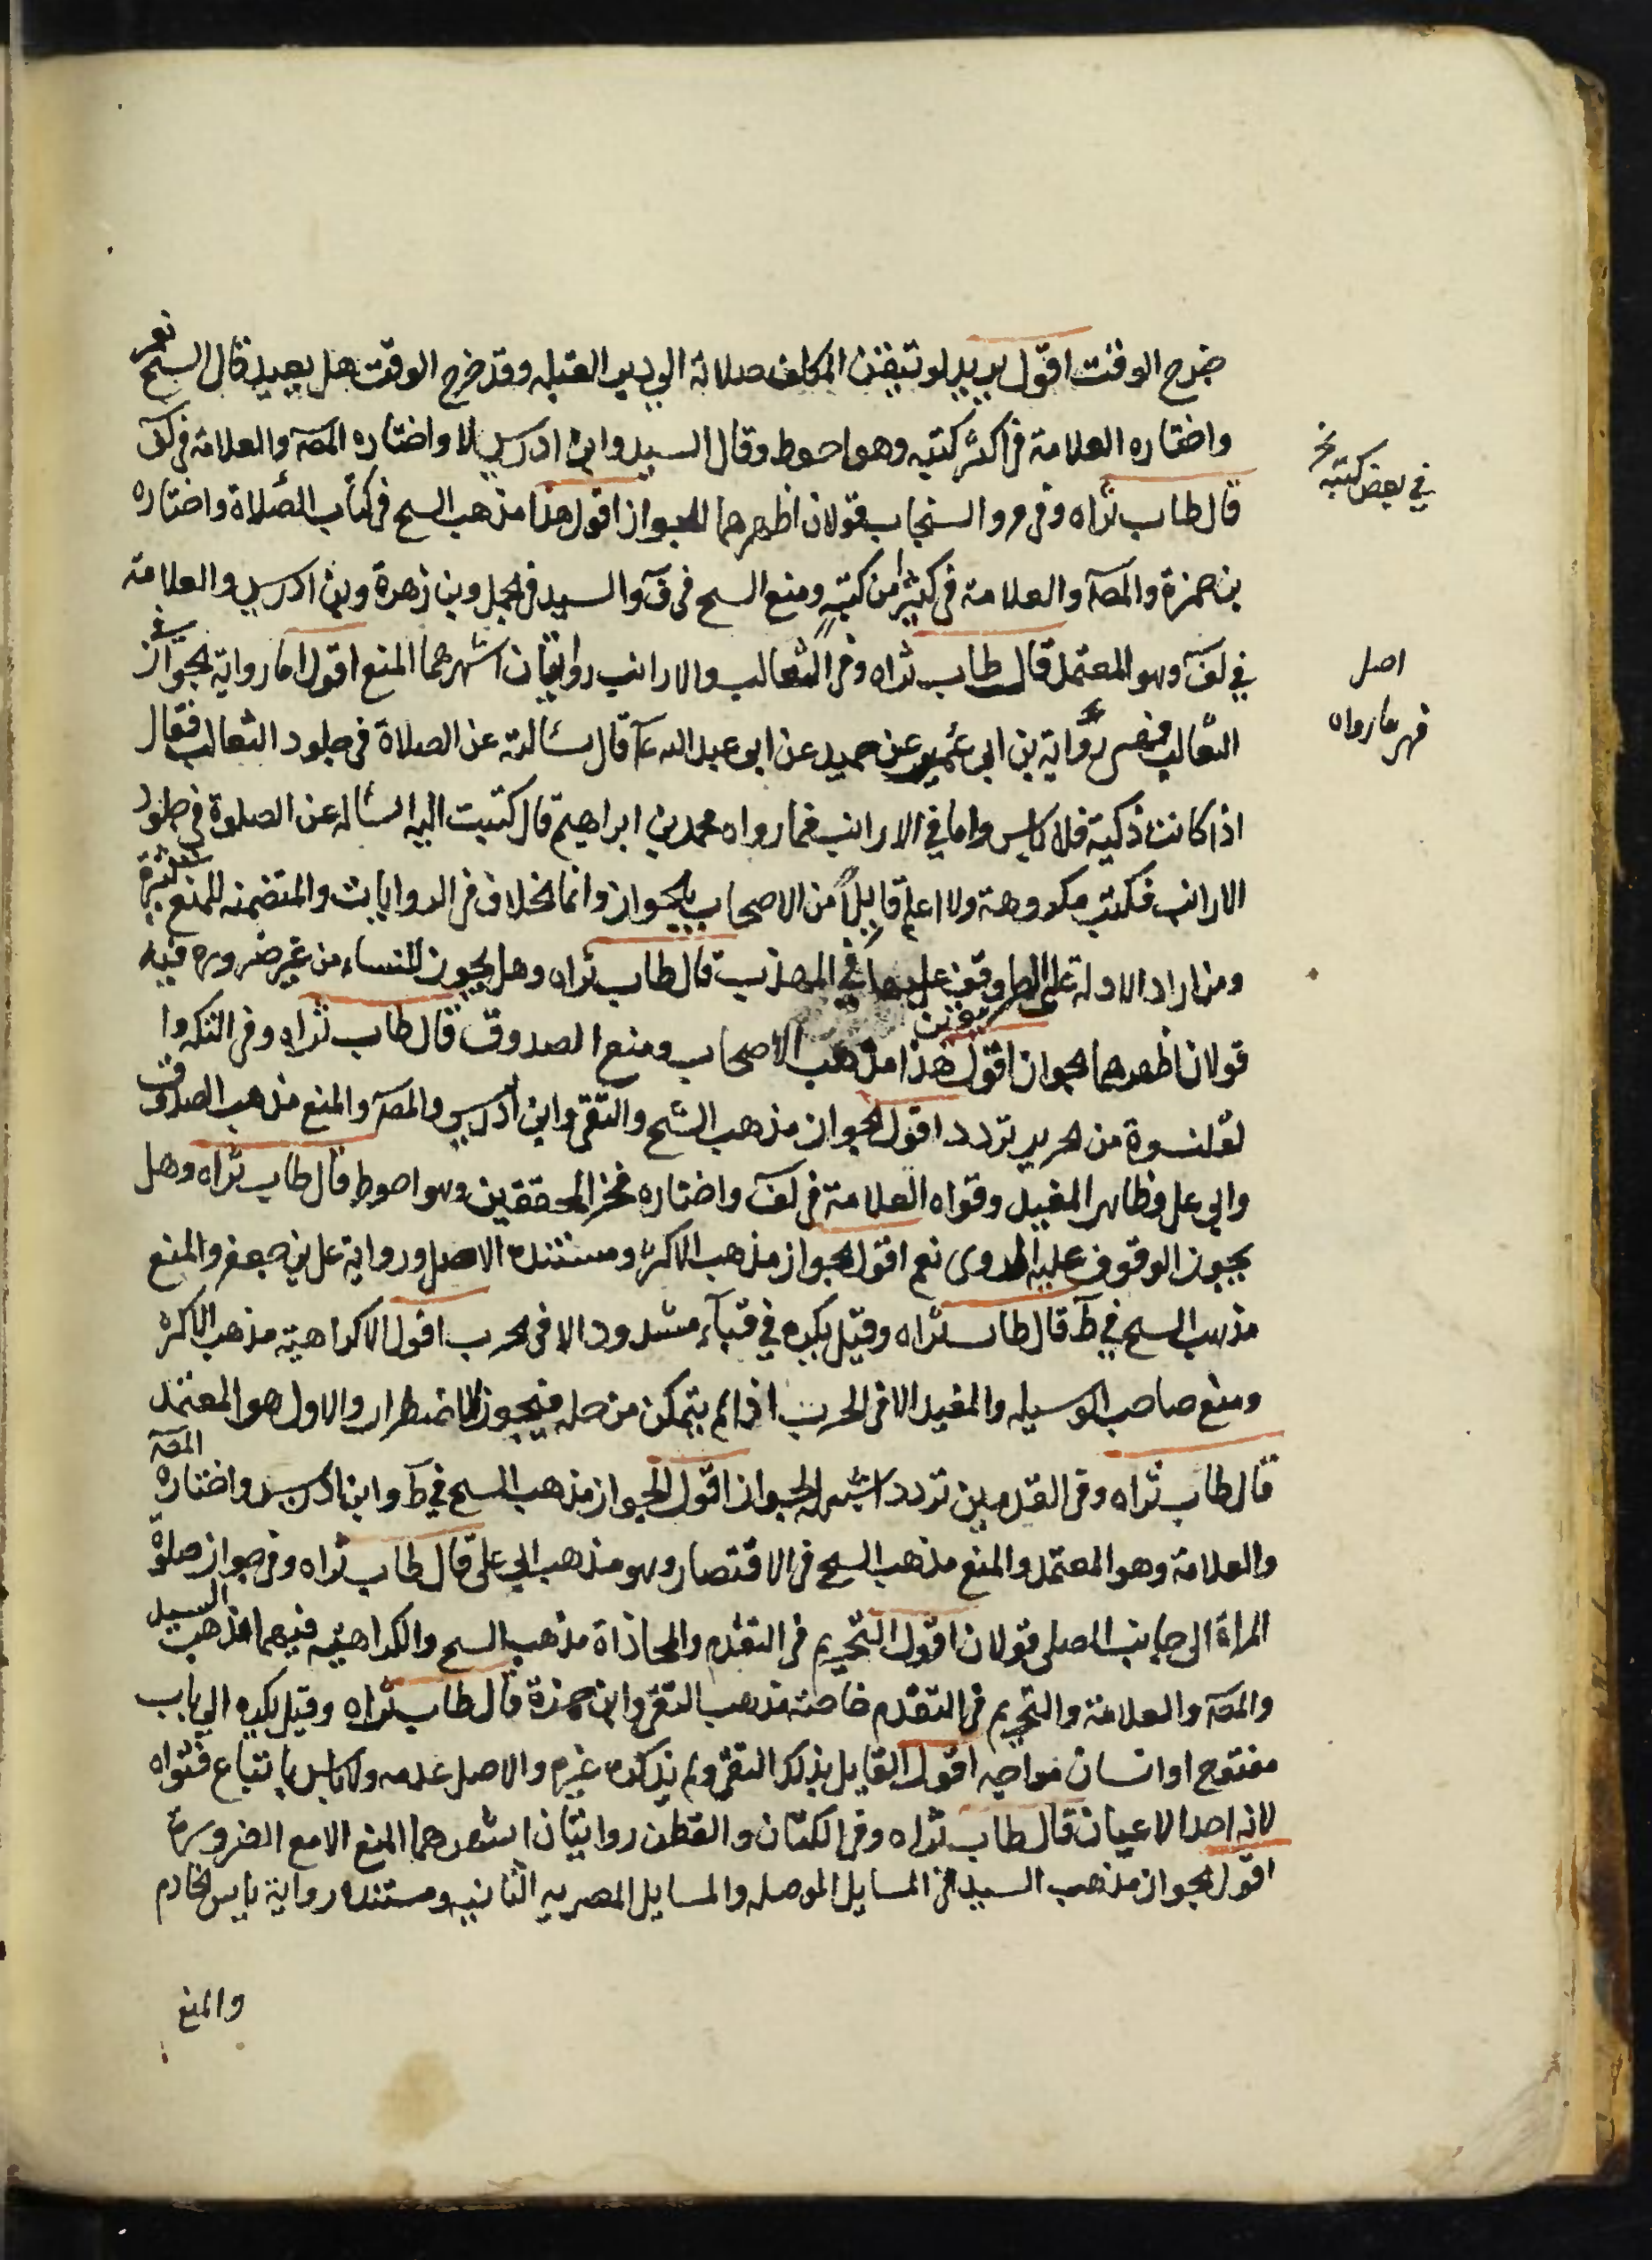 خرج الوقت اقول يريد لو تيقن المكلف صلاته الى دبر القبله وقد خرج الوقت هل يعيد قال الشيخ نعم
واختاره العلامة فى اكثر كتبه وهو احوط وقال السيد وابن ادريس لا واختاره المصہ والعلامة فى لف
في بعض كتبه
قال طاب ثراه وفى فرو السنجاب قولان اظهرهما الجواز اقول هذا مذهب الشيخ فى كتاب الصلاة واختاره
بن حمزة والمصہ والعلامة فى كثير من كتبه ومنع الشيخ فى ف والسيد فى الجمل وبن زهرة وبن ادريس والعلامة
في لف وهو المعتمد قال طاب ثراه وفى الثعالب والارانب روايتان اشهرهما المنع اقول اما رواية الجواز في
اصل
فهر ما رواه
الثعالب فهى رواية بن ابى عمير عن حميد عن ابو عبد الله ع قال سالته عن الصلاة فى جلود الثعالب فقال
اذا كانت ذكية فلا باس واما في الارانب فما رواه محمد بن ابراهيم قال كتبت اليه اساله عن الصلوة فى جلود
الارانب فكتب مكروهة ولا اعلم قايلا من الاصحاب بالجواز وانما الخلاف فى الروايات والمتضمنه للمنع كثيرة
ومن اراد الادلة على الطريقين وقف عليها في المهذب قال طاب ثراه وهل يجوز للنساء من غير ضروره فيه
قولان اظهرهما الجواز اقول هذا مذهب الاصحاب ومنع الصدوق قال طاب ثراه وفى التكه وا
لقلنسوة من الحرير تردد اقول الجواز مذهب الشيخ والتقى وابن ادريس والمصہ والمنع مذهب الصدوق
وابى على وظاهر المفيد وقواه العلامة فى لف واختاره فخر المحققين وهو احوط قال طاب ثراه وهل
يجوز الوقوف عليه المروى نعم اقول الجواز مذهب الاكثر ومستنده الاصل ورواية على بن جعفر والمنع
مذهب الشيخ في ط قال طاب ثراه وقيل يكره في قبآء مشدود الا فى الحرب اقول الكراهية مذهب الاكثر
ومنع صاحب الوسيله والمفيد الا فى الحرب اذا لم يتمكن من حله فيجوز للاضطرار والاول هو المعتمد
قال طاب ثراه وفى القدمين تردد اشبهه الجواز اقول الجواز مذهب الشيخ في ط وابن ادريس واختاره المصہ
والعلامة وهو المعتمد والمنع مذهب الشيخ فى الاقتصار وهو مذهب ابى على قال طاب ثراه وفى جواز صلوة
المراة الى جانب المصلى قولان اقول التحريم فى التقدم والمحاذاة مذهب الشيخ والكراهية فيهما مذهب السيد
والمصہ والعلامة والتحريم فى التقدم خاصة مذهب التقى وابن حمزة قال طاب ثراه وقيل يكره الى باب
مفتوح او انسان مواجه اقول القايل بذلك التقى ولم يذكره غيره والاصل عدمه ولا باس باتباع فتواه
لانه احد الاعيان قال طاب ثراه وفى الكتان والقطن روايتان اشهرهما المنع الا مع الضرورة
اقول الجواز مذهب السيد فى المسايل الموصله والمسايل المصريه الثانيه ومستنده رواية ياسر الخادم
والمنع